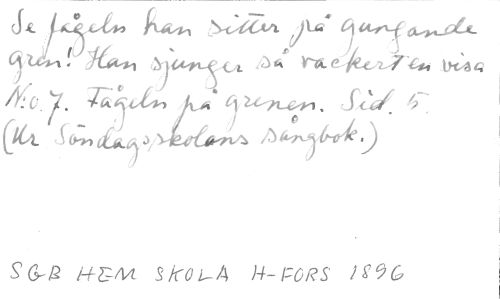 Se fågeln han sitter på gungande
gren! Han sjunger så vackert en visa
N:o 7. Fågeln på grenen. Sid. 5.
(Ur Söndagsskolans sångbok.)
SGB HEM SKOLA H-FORS 1896